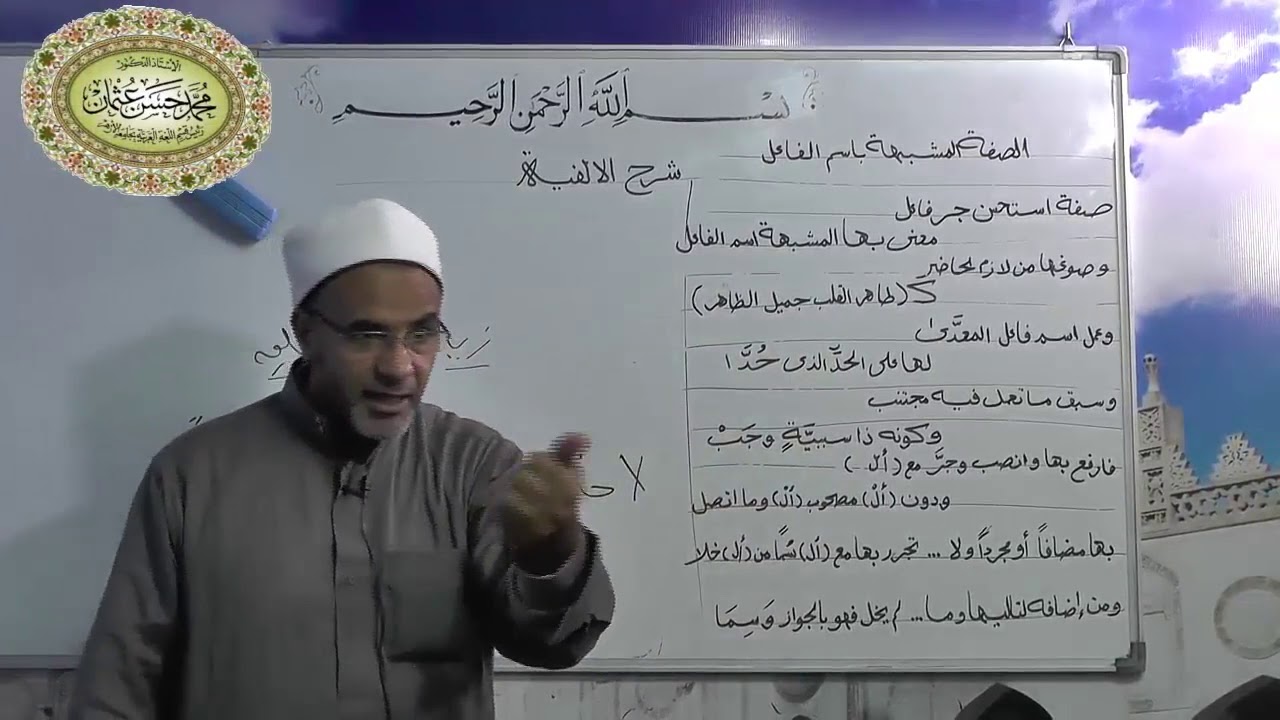 الأستاذ الدكتور
محمد حسن عثمان
بسم الله الرحمن الرحيم
الصفة المشبهة باسم الفاعل
شرح الالفية
صفة استحسن جر فاعل
معنى بها المشبهة اسم الفاعل
وصوغها من لازم لحاضر
كـ (طاهر القلب جميل الظاهر)
وعمل اسم فاعل المعدَّى
لها على الحدِّ الذى حُدَّا
وسبق ما تعمل فيه مجتنب
وكونه ذا سببيَّةٍ وجَبْ
فارفع بها وانصب وجرَّ مع (أل)
ودون (ألْ) مصحوب (ألْ) وما اتصل
بها مضافاً أو مجرداً ولا ... تجرر بها مع (أل) سُمًا من (أل) خلا
ومن إضافه لتاليها وما ... لم يخل فهو بالجواز وَسِمَا
لا